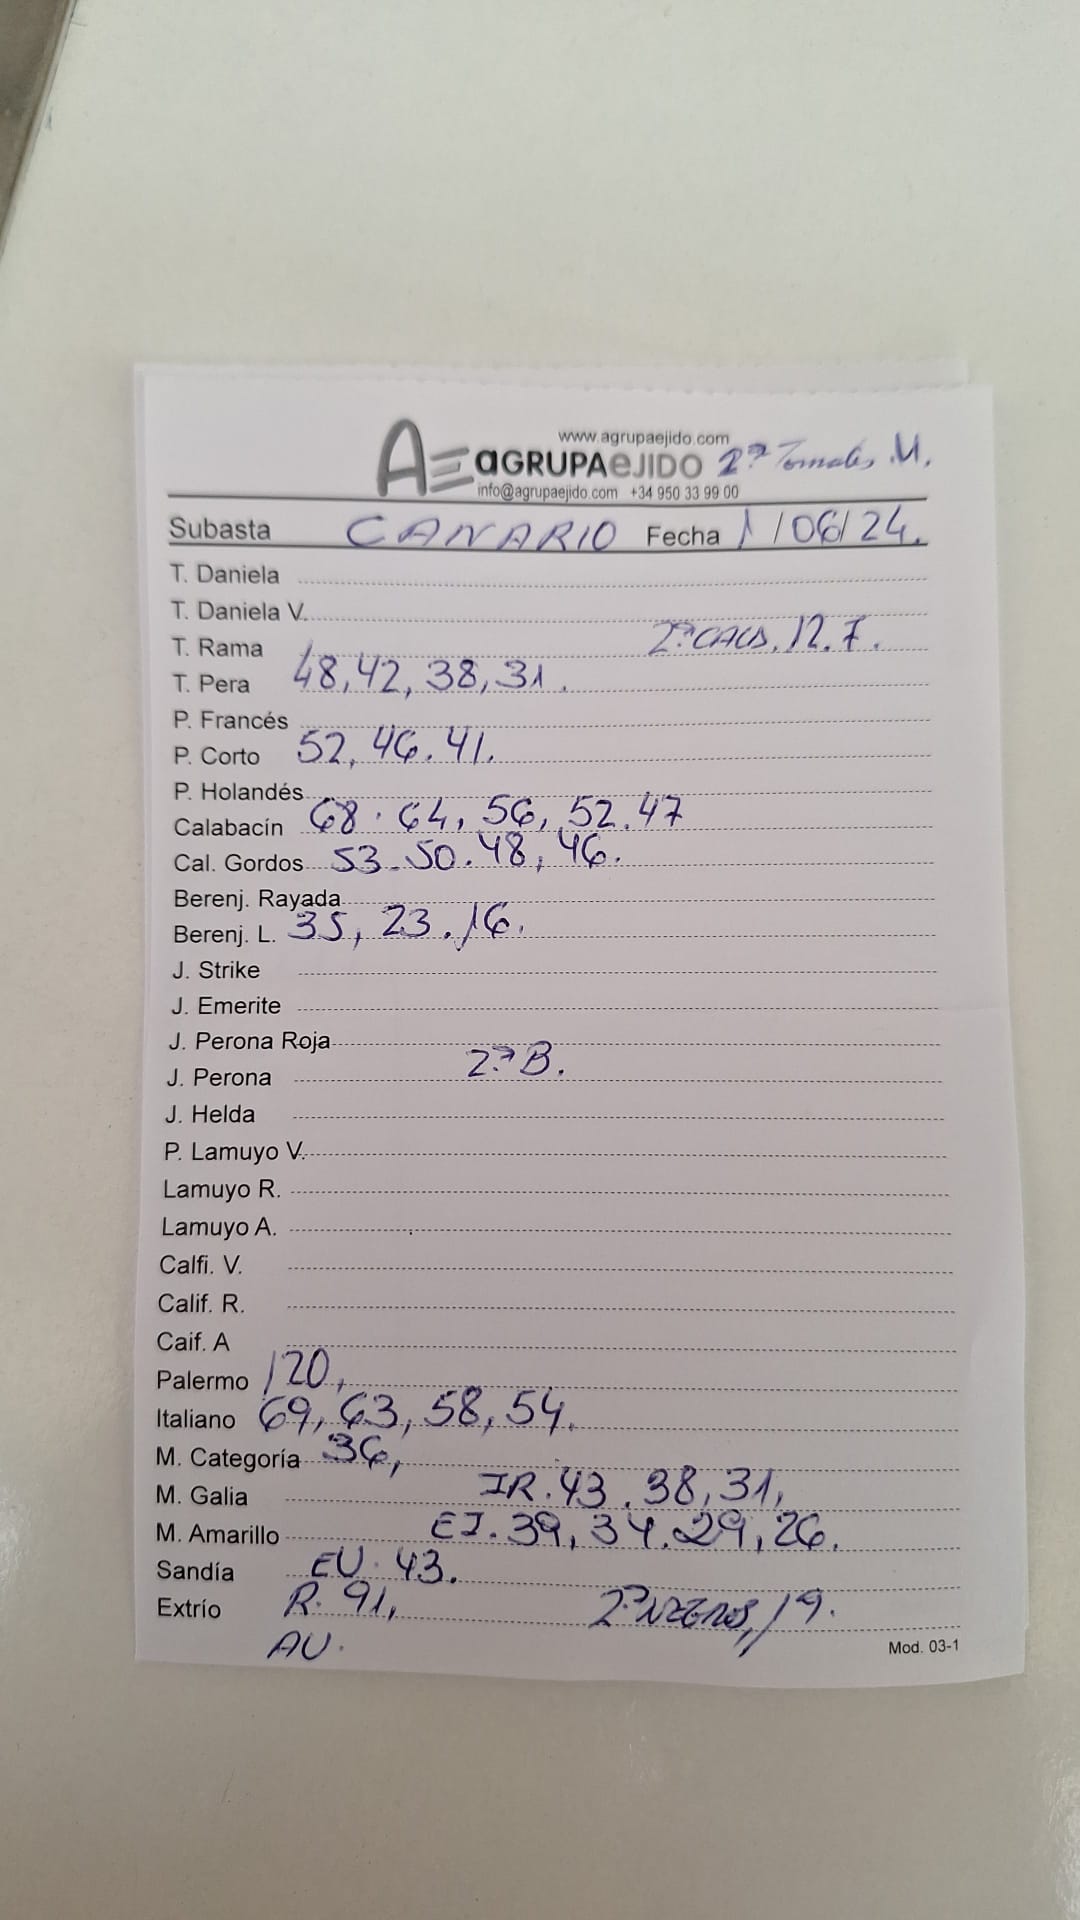 www.agrupaejido.com
AE aGRUPAeJIDO 2ª Tomates M.
info@agrupaejido.com +34 950 33 99 00
Subasta CANARIO Fecha 1/06/24.
T. Daniela
T. Daniela V.
T. Rama 2ª CALS. 12. 7.
T. Pera 48, 42, 38, 31.
P. Francés
P. Corto 52, 46. 41.
P. Holandés
Calabacín 68. 64, 56, 52. 47
Cal. Gordos 53. 50. 48, 46.
Berenj. Rayada
Berenj. L. 35, 23. 16.
J. Strike
J. Emerite
J. Perona Roja
J. Perona 2ª B.
J. Helda
P. Lamuyo V.
Lamuyo R.
Lamuyo A.
Calfi. V.
Calif. R.
Caif. A
Palermo 120,
Italiano 69, 63, 58, 54.
M. Categoría 36,
M. Galia IR. 43. 38, 31,
M. Amarillo EJ. 39, 34. 29, 26.
Sandía EU. 43.
Extrío R. 91, 2ª NEGROS, 19.
AU.
Mod. 03-1